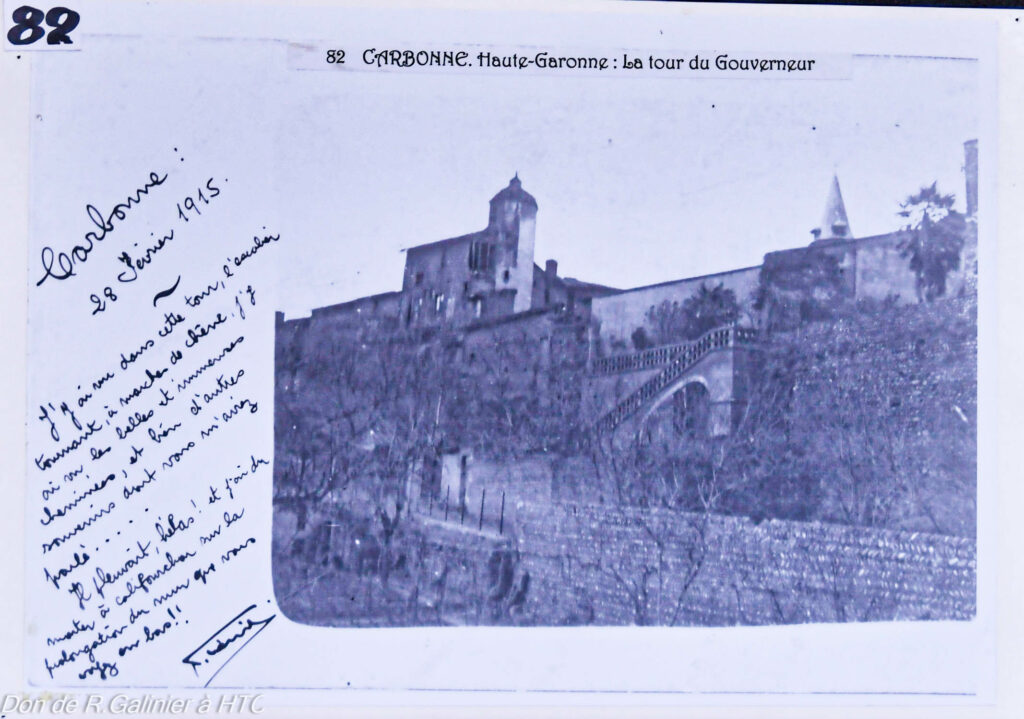 82
82 CARBONNE. Haute-Garonne : La tour du Gouverneur
Carbonne :
28 Février 1915.
J'y ai vu dans cette tour, l'escalier
tournant, à marches de chêne. J'y
ai vu les belles et immenses
cheminées, et bien d'autres
souvenirs dont vous m'aviez
parlé....
Il pleuvait, hélas! et j'ai du
monter à califourchon sur la
prolongation du mur que vous
voyez en bas!!
Don de R.Galinier à HTC